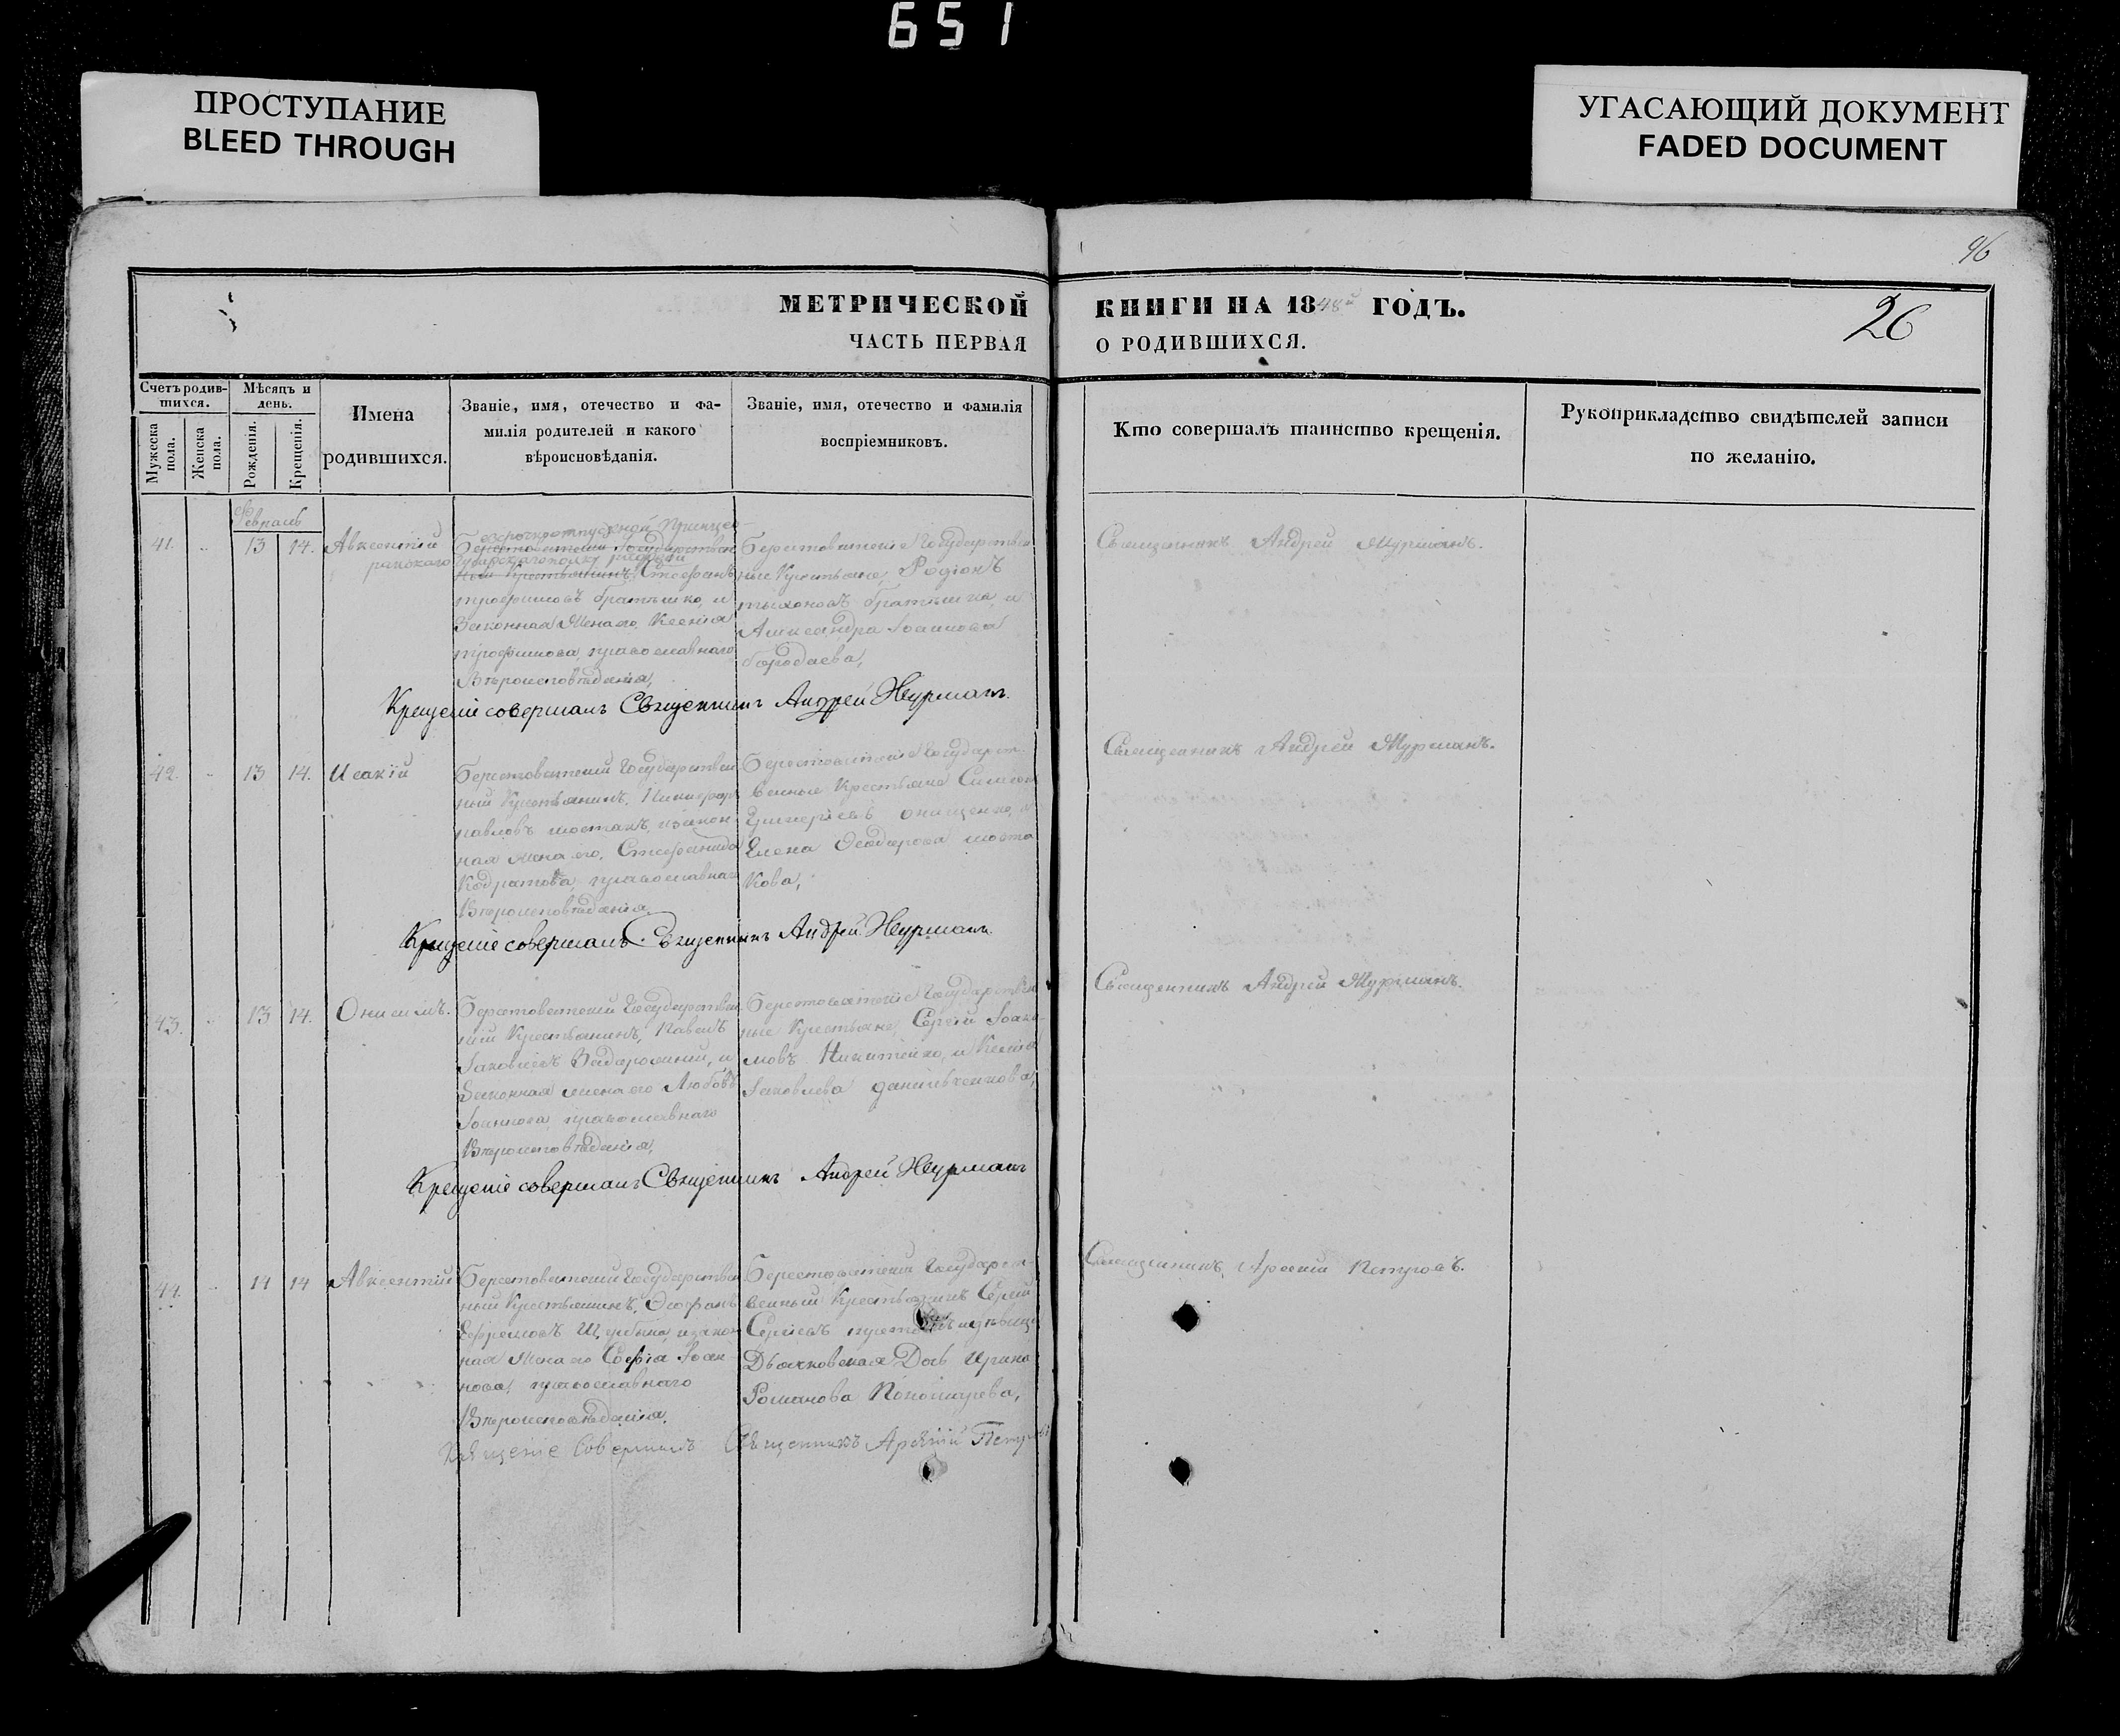 651
ПРОСТУПАНИЕ
BLEED THROUGH
УГАСАЮЩИЙ ДОКУМЕНТ
FADED DOCUMENT
96
26
МЕТРИЧЕСКОЙ КНИГИ НА 1848й ГОДЪ.
ЧАСТЬ ПЕРВАЯ О РОДИВШИХСЯ.
Счетъ родив-
шихся.
Мужеска пола.
Женска пола.
Мѣсяцъ и
день.
Рожденія.
Крещенія.
Имена
родившихся.
Званіе, имя, отечество и фа-
милія родителей и какого
вѣроисповѣданія.
Званіе, имя, отечество и фамилія
воспріемниковъ.
Кто совершалъ таинство крещенія.
Рукоприкладство свидѣтелей записи
по желанію.
Февраль
41. 13 14. Авксентій
Стефанъ
трофимовъ братышко, и
Законная Жена его Ксенія
трофимова, православнаго
Вѣроисповѣданія,
Берестовенскіе Государствен
ные Крестьяне, Родіонъ
тихоновъ братышко, и
Александра Іоаннова
бородаева,
Священникъ Андрей Журманъ.
Крещеніе совершалъ Священникъ Андрей Журманъ
42. 13 14. Исакій
Берестовенскій Государствен
ный Крестьянинъ, Никифоръ
павловъ шостакъ, изакон
ная жена его, Стефанида
Кодратова, православнаго
Вѣроисповѣданія
Берестовенскіе Государст
венные Крестьяне Симеон
Григоріевъ онищенко, и
Елена Феодорова шоста
Кова,
Священникъ Андрей Журманъ.
Крещеніе совершалъ Священникъ Андрей Журманъ
43. 13 14. Онисимъ.
Берестовенскій Государствен
ный Крестьянинъ, Павелъ
Іаковлевъ Задорожний, и
Законная жена его Любовь
Іоаннова, православнаго
Вѣроисповѣданія,
Берестовенскіе Государствен
ные Крестьяне, Сергій Іоаки
мовъ Никитенко, и Ксенія
Іаковлева данильченкова,
Священникъ Андрей Журманъ.
Крещеніе совершалъ Священникъ Андрей Журманъ
44. 14 14 Авксентій
Берестовенскій Государствен
ный Крестьянинъ, Феофанъ
Ефремовъ Щербина, изакон
ная Жена его Софія Іоан
нова, православнаго
Вѣроисповѣданія.
Берестовенскій Государст
венный Крестьянинъ Сергій
Сергіевъ
Дьячковская Дочь Ирина
Романова Пономарева,
Священникъ, Арсеній Петровъ.
Крещеніе Совершилъ Священникъ Арсеній Петровъ